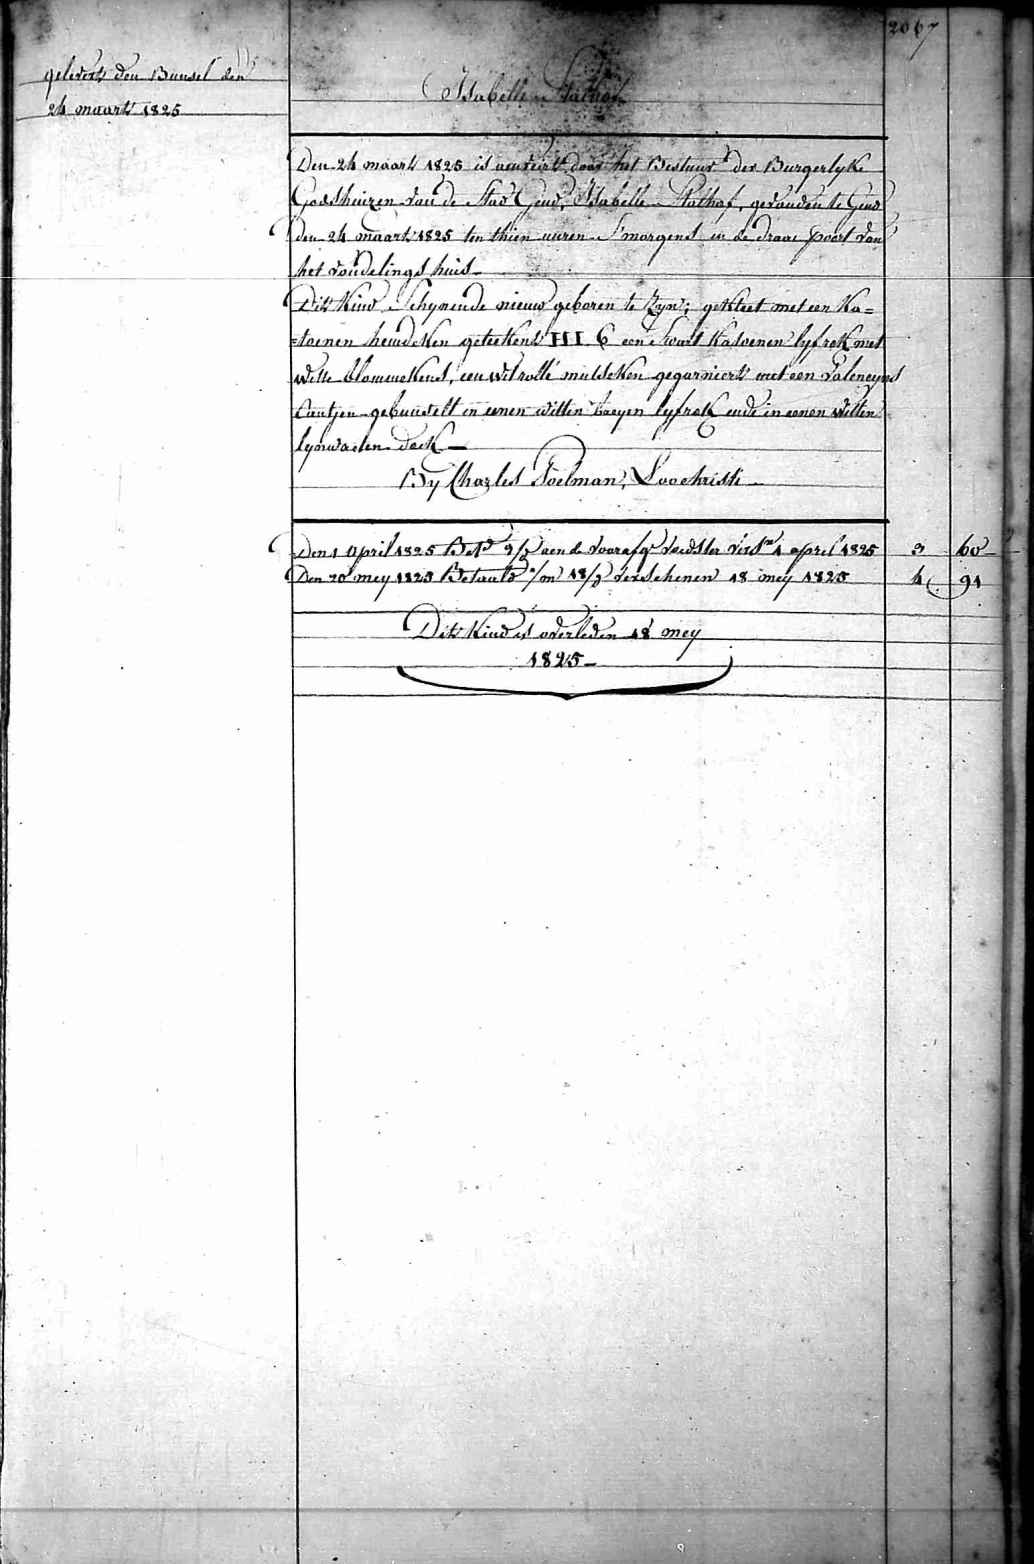 2067
gelevert den Bunsel den
24 maart 1825
Isabelle Stathof
Den 24 maart 1825 is aenveirt door het Bestuur der Burgerlyke
Godshuizen van de Stad Gend, Isabelle Stathof, gevonden te Gend
den 24 maart 1825 ten thien uuren S'morgens in de draae poort van
het vondelings huis
Dit Kind Schynende nieuw geboren te Zyn; gekleet met een Ka=
=toenen hemdeken geteekent III. 6 een Swart Katoenen lyfrok met
witte blommekens, een wit mutseken gegarniert met een valencyns
Cantjen gebunselt in eenen witten baeyen lyfrok ende in eenen Witten
lynwaeten doek
By Charles Poelman, Loochristi
Den 1 April 1825 Bet.d 9/ aen de voorafg.e voedster vers.n 1 april 1825 3 60
Den 20 mey 1825 Betaelt 18/ verschenen 18 mey 1825 4 91
Dit Kind is overleden 18 mey
1825